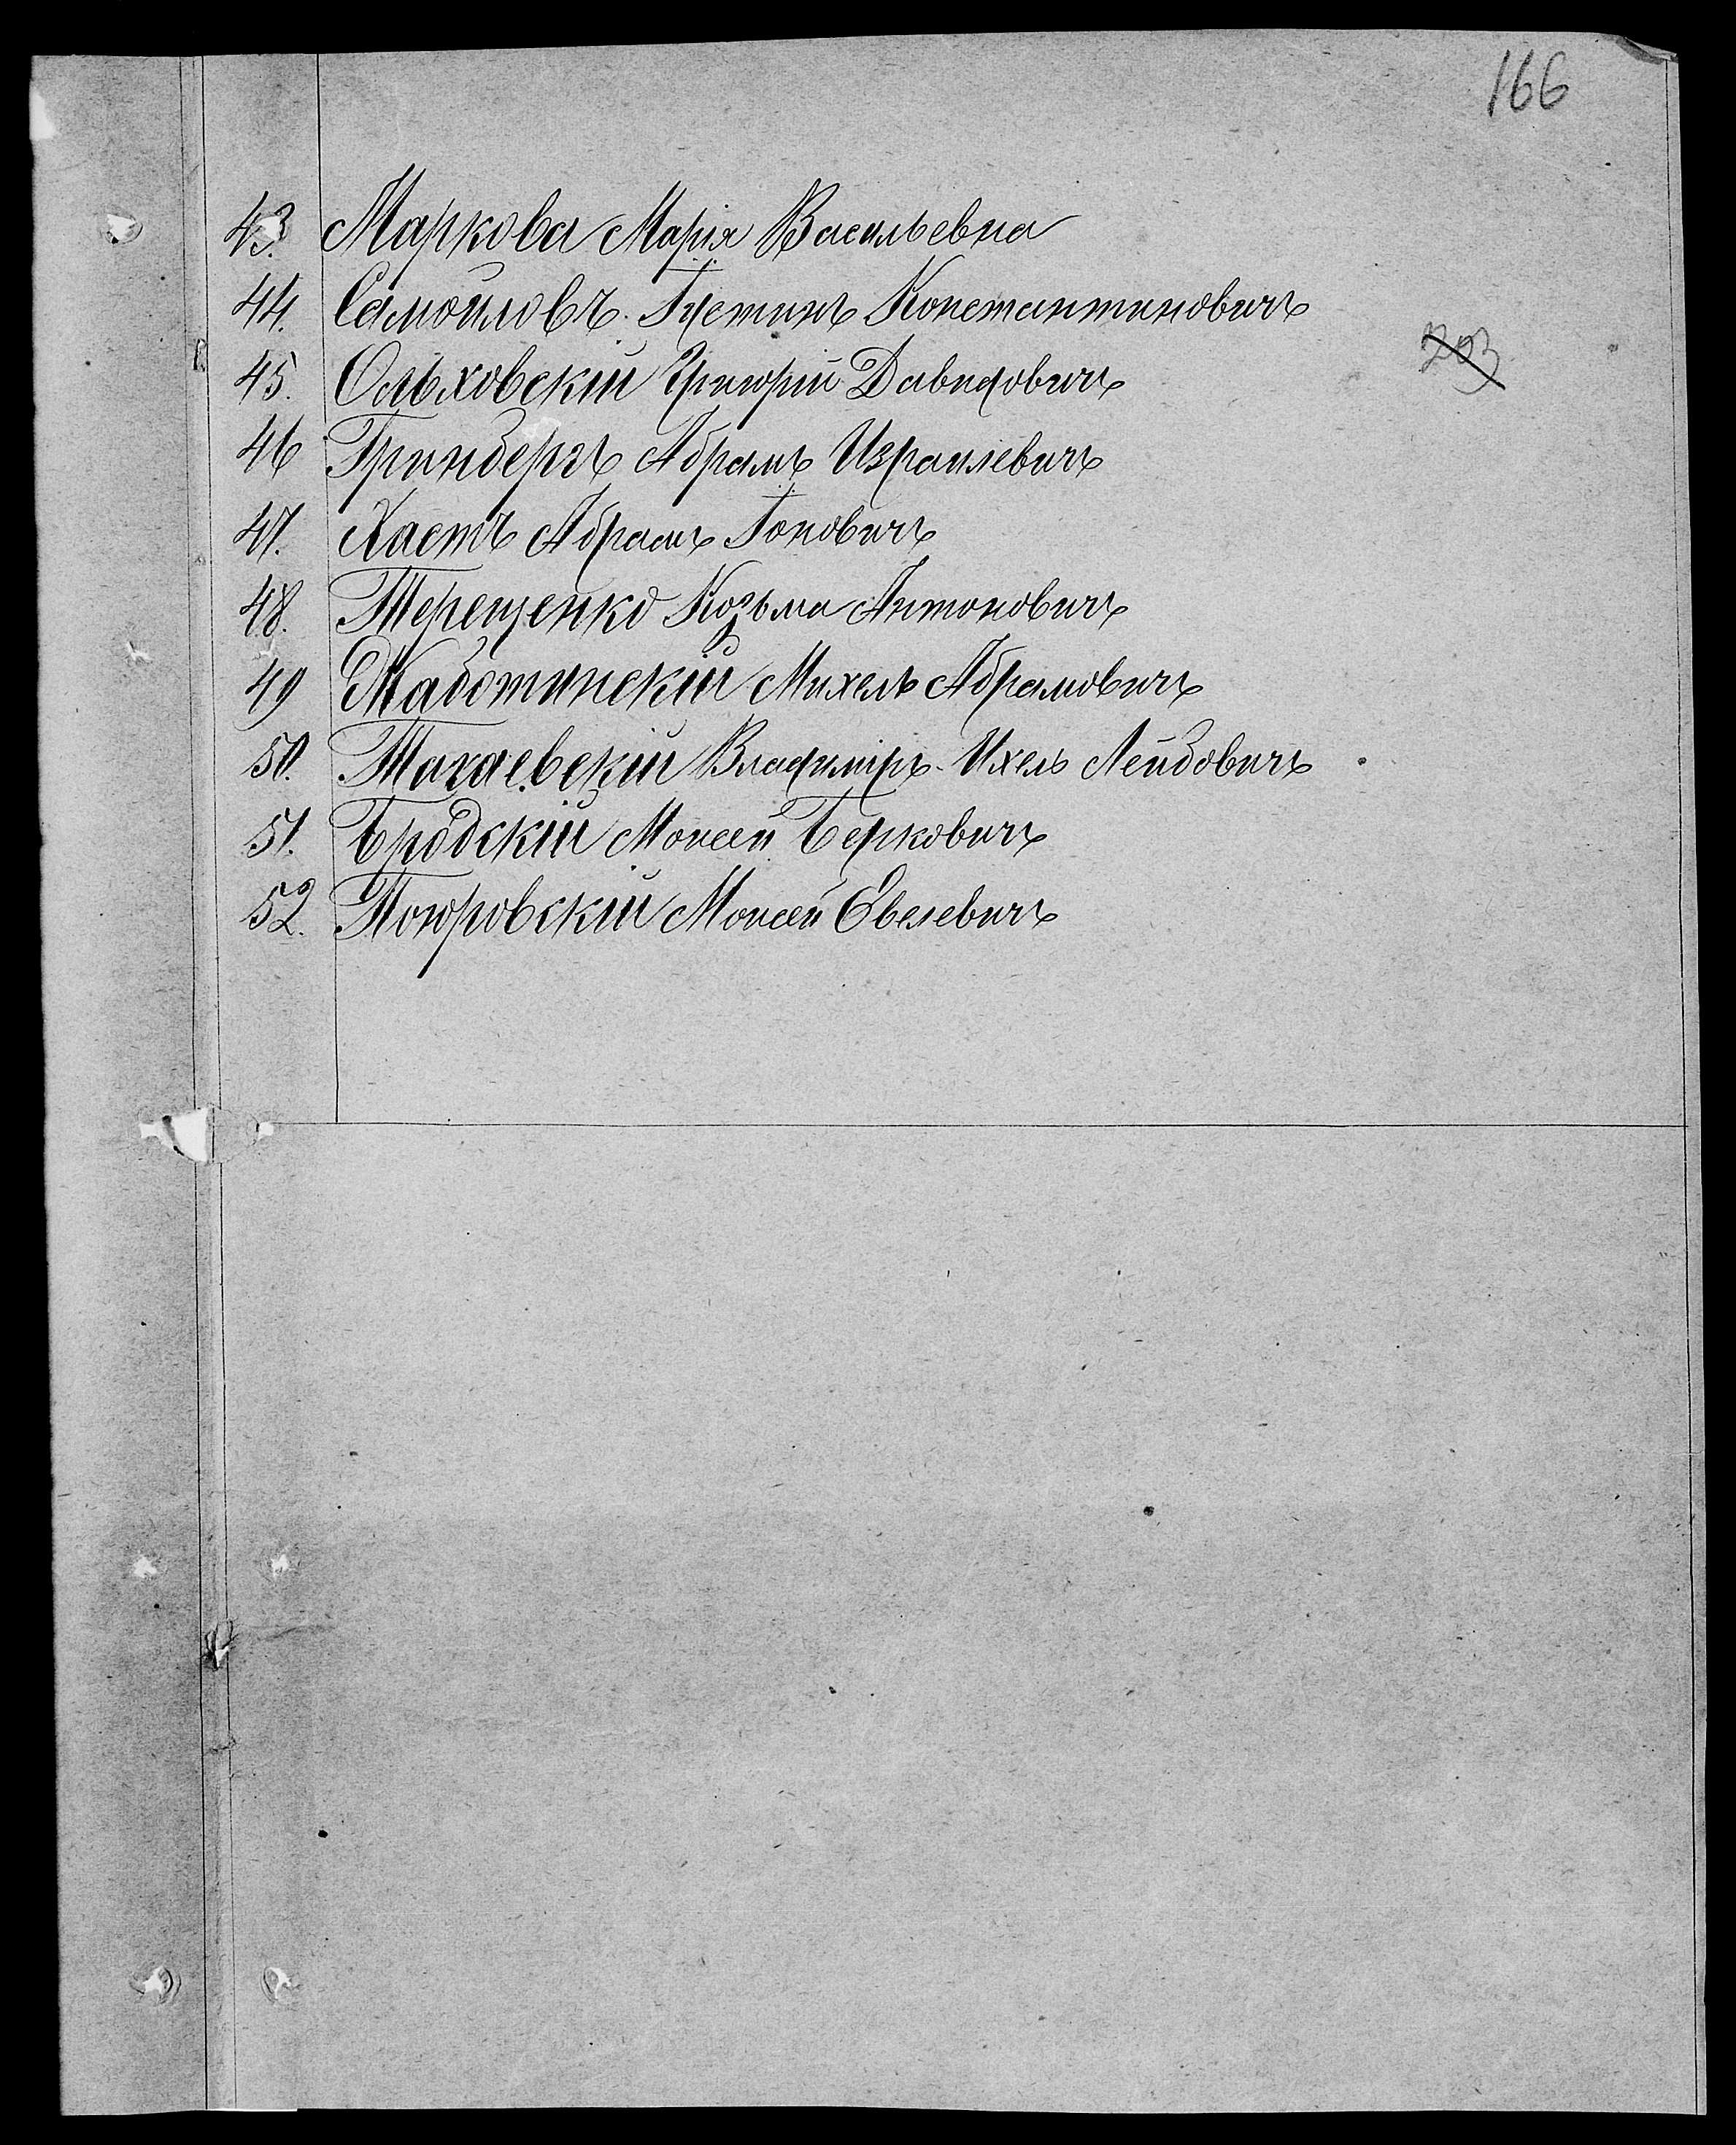 166
43. Маркова Марія Васильевна
44. Самойловъ Іустинъ Константиновичъ
203
45. Ольховскій Григорій Давидовичъ
46 Гринбергъ Абрамъ Израилевичъ
47. Хаетъ Абрамъ Іоновичъ
48. Терещенко Козьма Антоновичъ
49 Жаботинскій Михель Абрамовичъ
50. Тагаевскій Владиміръ-Ихель Лейбовичъ
51. Бродскій Моисей Берковичъ
52. Покровскій Моисей Евелевичъ